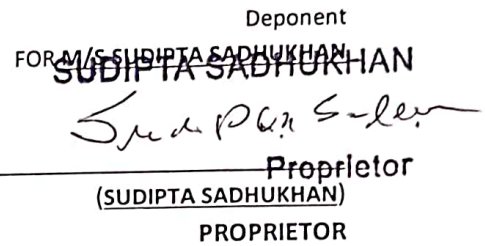 Deponent
FOR M/S SUDIPTA SADHUKHAN
SUDIPTA SADHUKHAN
Proprietor
(SUDIPTA SADHUKHAN)
PROPRIETOR